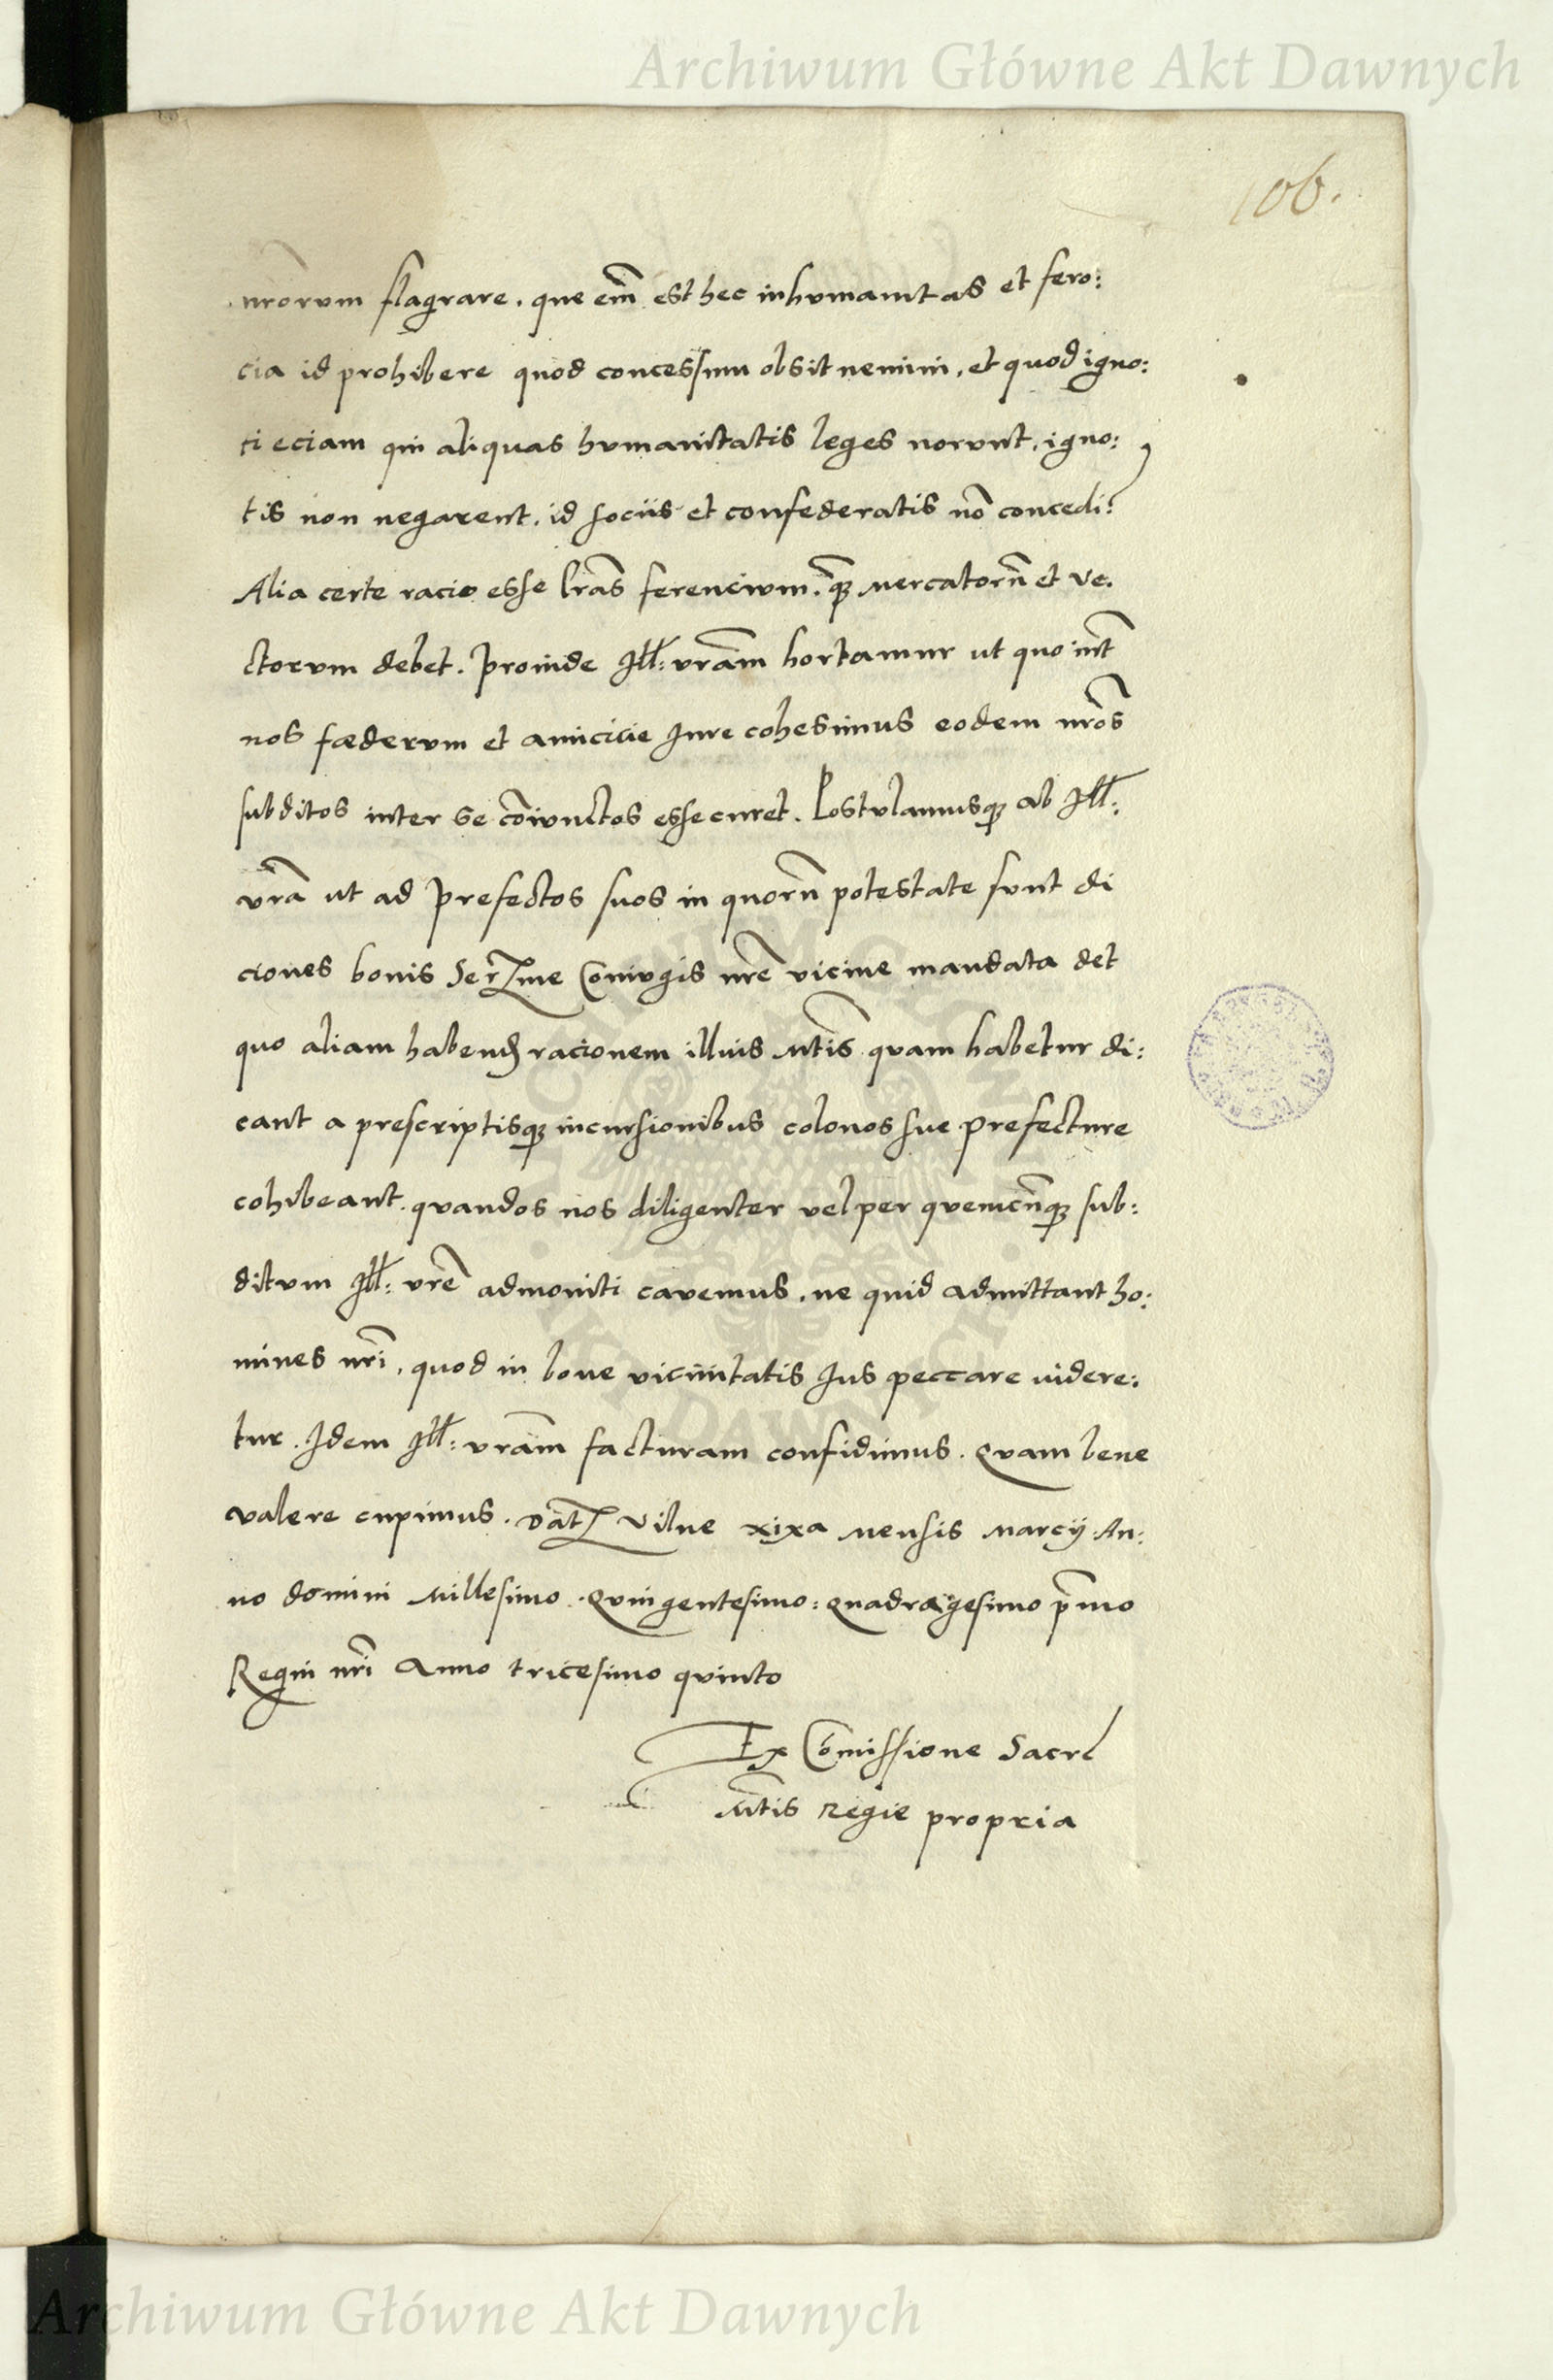 Archiwum Główne Akt Dawnych
106.
nrorum flagrare. que em est hec inhumanitas et fero:
cia id prohibere quod concessum obsit nemini, et quod igno:
ti eciam qui aliquas humanitatis leges norunt, igno:
tis non negarent, id sociis et confederatis no concedi?
Alia certe racio esse lras ferencium, q̃ȝ mercatorũ et ve.
ctorum debet. Proinde Ill: vram hortamur ut quo int
nos fœderum et amicicie Iure cohesimus eodem nros
subditos inter se coiunctos esse curet. Postulamusqȝ ab Ill:
vra ut ad prefectos suos in quorũ potestate sunt di
ciones bonis Serme Coniugis nre vicine mandata det
quo aliam habend racionem illius Mtis quam habetur di:
cant a prescriptisqȝ incursionibus colonos sue prefecture
cohibeant. quandos nos diligenter vel per quemcũqȝ sub:
ditum Ill: vre admoniti cavemus, ne quid admittant ho:
mines nri, quod in bone vicinitatis Ius peccare videre:
tur. Idem Ill: vram facturam confidimus. Quam bene
valere cupimus. Dat Vilne xixa mensis Marcij. An:
no domini Millesimo. Quingentesimo: Quadragesimo pmo
Regni nri Anno tricesimo quinto
Ex Comissione Sacre
Mtis Regie propria
Archiwum Główne Akt Dawnych